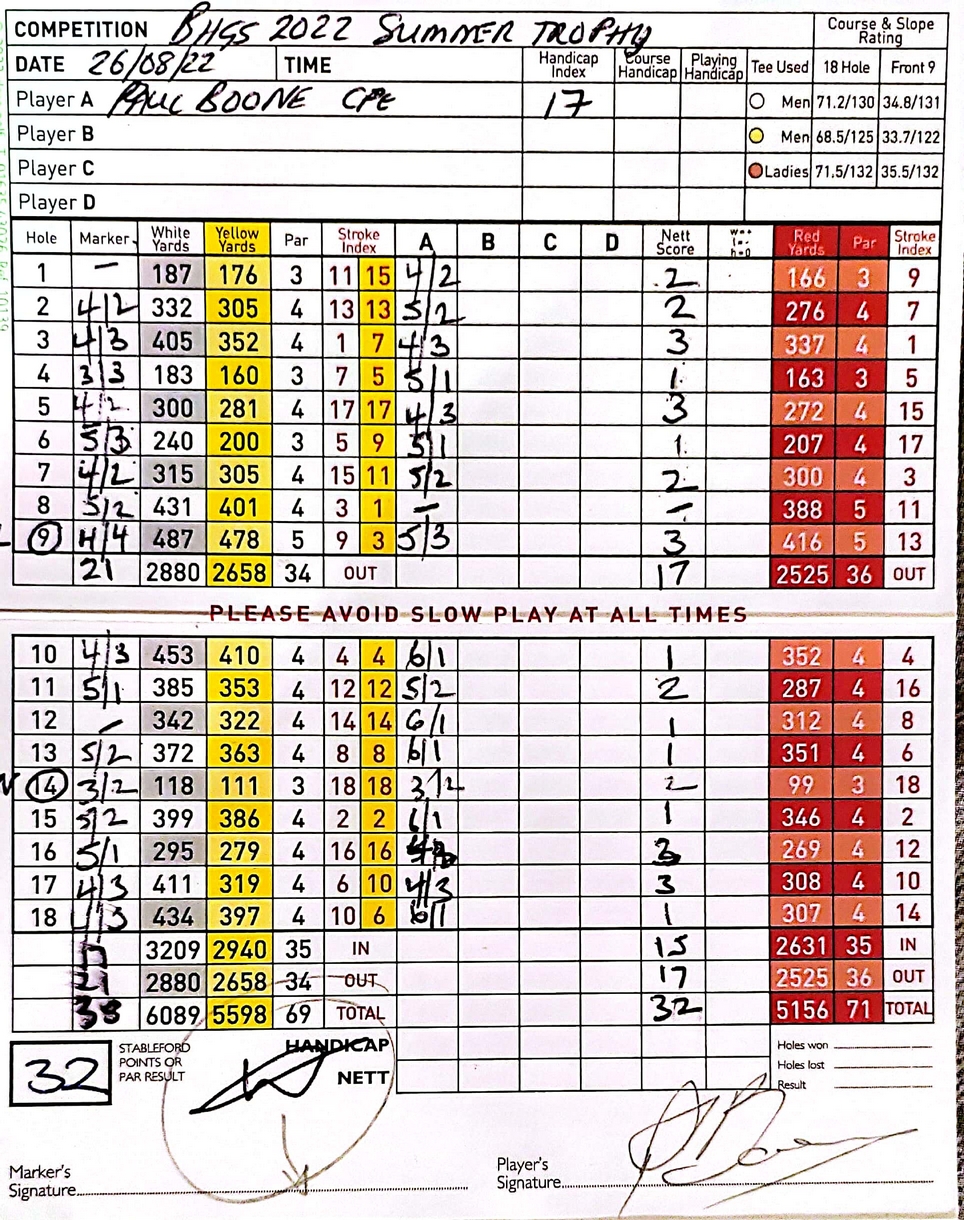 COMPETITION BHGS 2022 SUMMER TROPHY Course & Slope Rating
DATE 26/08/22 TIME Handicap Index Course Handicap Playing Handicap Tee Used 18 Hole Front 9
Player A PAUL BOONE CPE 17 Men 71.2/130 34.8/131
Player B Men 68.5/125 33.7/122
Player C Ladies 71.5/132 35.5/132
Player D
Hole Marker White Yards Yellow Yards Par Stroke Index A B C D Nett Score W=+ L=- H=0 Red Yards Par Stroke Index
1 – 187 176 3 11 15 4/2 2 166 3 9
2 4/2 332 305 4 13 13 5/2 2 276 4 7
3 4/3 405 352 4 1 7 4/3 3 337 4 1
4 3/3 183 160 3 7 5 5/1 1 163 3 5
5 4/2 300 281 4 17 17 4/3 3 272 4 15
6 5/3 240 200 3 5 9 5/1 1 207 4 17
7 4/2 315 305 4 15 11 5/2 2 300 4 3
8 5/2 431 401 4 3 1 – – 388 5 11
9 4/4 487 478 5 9 3 5/3 3 416 5 13
21 2880 2658 34 OUT 17 2525 36 OUT
PLEASE AVOID SLOW PLAY AT ALL TIMES
10 4/3 453 410 4 4 4 6/1 1 352 4 4
11 5/1 385 353 4 12 12 5/2 2 287 4 16
12 – 342 322 4 14 14 6/1 1 312 4 8
13 5/2 372 363 4 8 8 6/1 1 351 4 6
14 3/2 118 111 3 18 18 3/2 2 99 3 18
15 5/2 399 386 4 2 2 6/1 1 346 4 2
16 5/1 295 279 4 16 16 3 269 4 12
17 4/3 411 319 4 6 10 4/3 3 308 4 10
18 4/3 434 397 4 10 6 6/1 1 307 4 14
3209 2940 35 IN 15 2631 35 IN
21 2880 2658 34 OUT 17 2525 36 OUT
38 6089 5598 69 TOTAL 32 5156 71 TOTAL
32 STABLEFORD POINTS OR PAR RESULT HANDICAP
NETT
Holes won
Holes lost
Result
Marker's Signature
Player's Signature